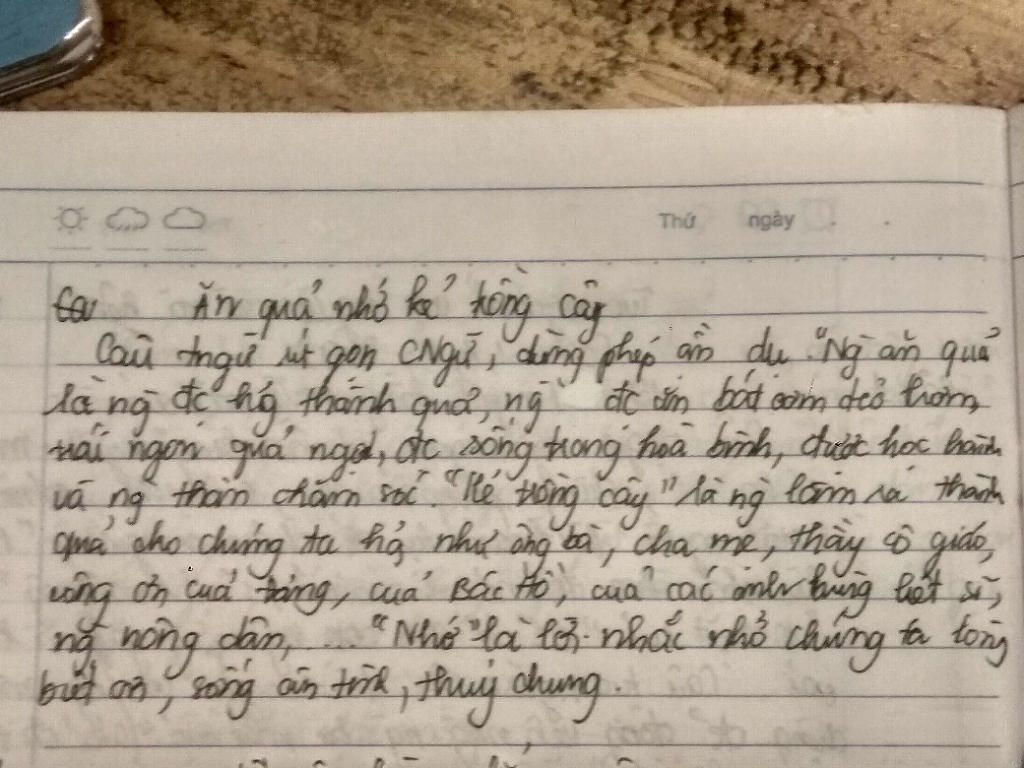 Thứ ngày
Ăn quả nhớ kẻ trồng cây
Câu tngữ rút gọn CNgữ, dùng phép ẩn dụ. "Ng ăn quả
là ng đc hg thành quả, ng đc ăn bát cơm dẻo thơm,
trái ngon quả ngọt, đc sống trong hoà bình, được học hành
và ng thân chăm sóc. "Kẻ trồng cây" là ng làm ra thành
quả cho chúng ta hg như ông bà, cha mẹ, thầy cô giáo,
công ơn của Đảng, của Bác Hồ, của các anh hùng liệt sĩ,
ng nông dân, .... "Nhớ" là lời nhắc nhở chúng ta lòng
biết ơn, sống ân tình, thuỷ chung.